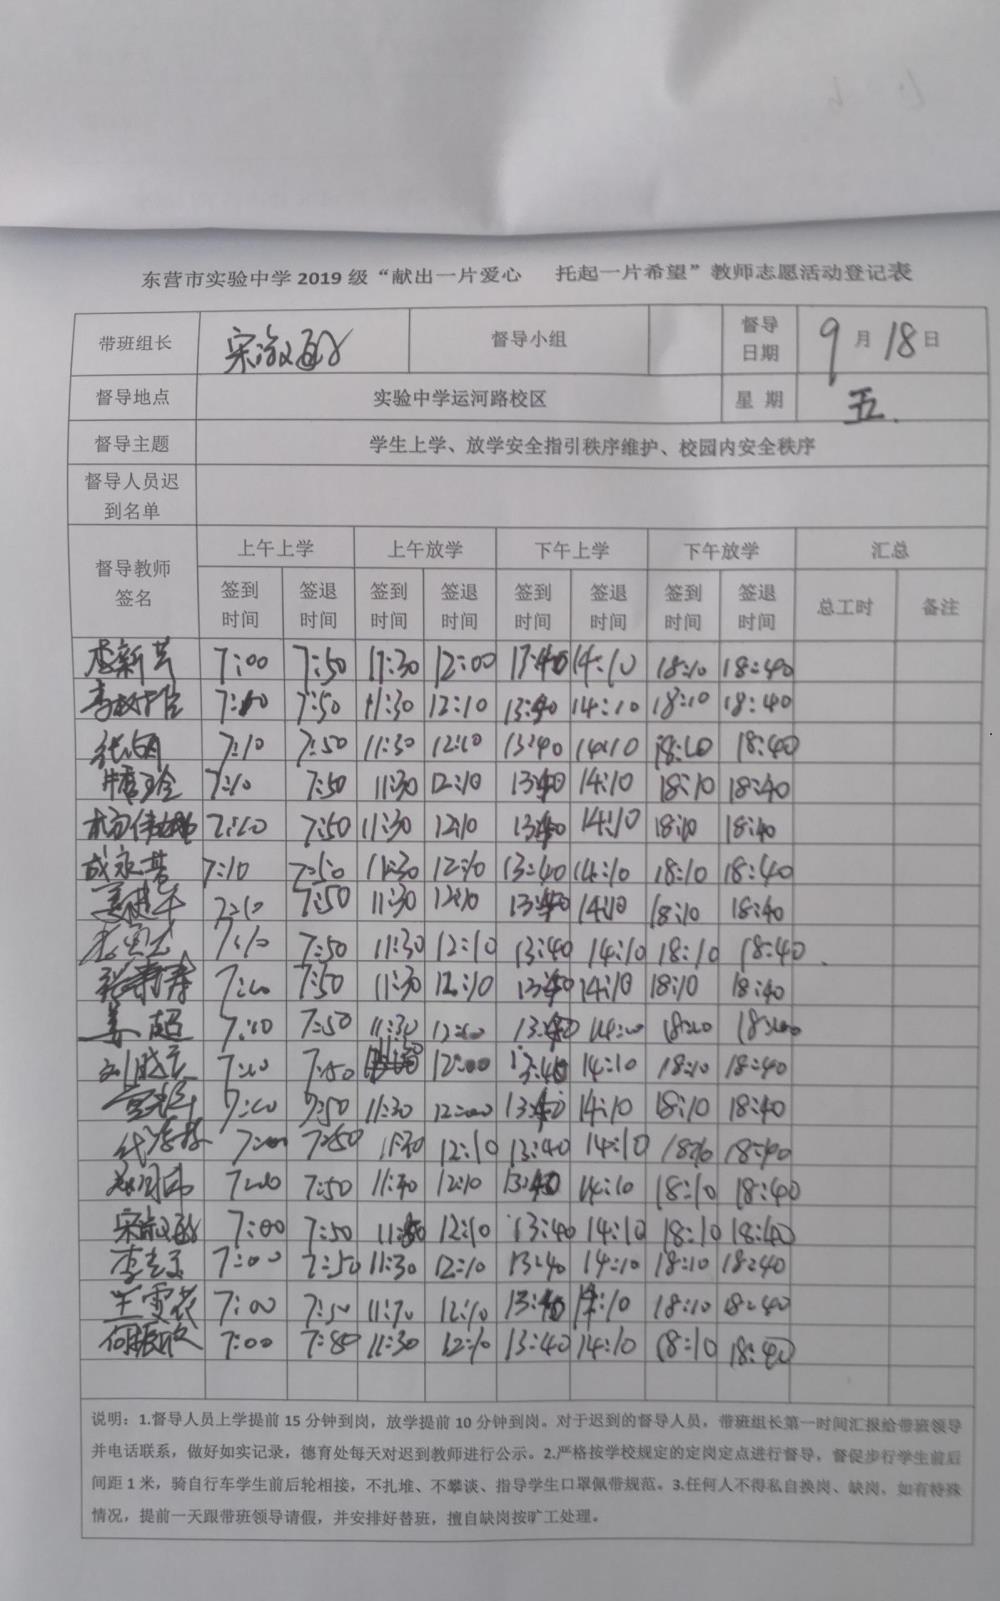 东营市实验中学2019级“献出一片爱心 托起一片希望”教师志愿活动登记表
带班组长 宋淑敏 督导小组 督导日期 9月18日
督导地点 实验中学运河路校区 星 期 五.
督导主题 学生上学、放学安全指引秩序维护、校园内安全秩序
督导人员迟到名单
督导教师签名 上午上学 上午放学 下午上学 下午放学 汇总
签到时间 签退时间 签到时间 签退时间 签到时间 签退时间 签到时间 签退时间 总工时 备注
李新芳 7:00 7:50 11:30 12:00 14:10 18:10 18:40
7:50 11:30 12:10 13:40 14:10 18:10 18:40
7:10 7:50 11:30 12:10 13:40 14:10 18:10 18:40
7:10 7:50 11:30 12:10 13:40 14:10 18:10 18:40
7:10 7:50 11:30 12:10 13:40 14:10 18:10 18:40
成永芳 7:10 7:50 11:30 12:10 13:40 14:10 18:10 18:40
7:10 7:50 11:30 12:10 13:40 14:10 18:10 18:40
7:10 7:50 11:30 12:10 13:40 14:10 18:10 18:40
7:10 7:50 11:30 12:10 13:40 14:10 18:10 18:40
姜超 7:10 7:50 11:30 13:40 18:10
7:10 7:50 12:00 13:40 14:10 18:10 18:40
7:50 11:30 13:40 14:10 18:10 18:40
7:50 11:30 12:10 13:40 14:10 18:10 18:40
7:50 12:10 13:40 14:10 18:10 18:40
宋淑敏 7:00 7:50 12:10 13:40 14:10 18:10 18:40
7:00 7:50 11:30 12:10 13:40 14:10 18:10 18:40
王雪花 7:00 7:50 12:10 13:40 14:10 18:10 18:40
7:00 11:30 12:10 13:40 14:10 18:10 18:40
说明：1.督导人员上学提前15分钟到岗，放学提前10分钟到岗。对于迟到的督导人员，带班组长第一时间汇报给带班领导
并电话联系，做好如实记录，德育处每天对迟到教师进行公示。2.严格按学校规定的定岗定点进行督导，督促步行学生前后
间距1米，骑自行车学生前后轮相接，不扎堆、不攀谈、指导学生口罩佩带规范。3.任何人不得私自换岗、缺岗，如有特殊
情况，提前一天跟带班领导请假，并安排好替班，擅自缺岗按旷工处理。